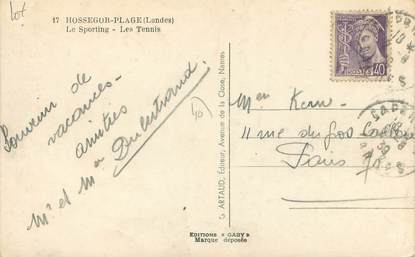 17 HOSSEGOR-PLAGE (Landes)
Le Sporting - Les Tennis
Souvenir de
vacances -
amitiés
Mr et Mme
40
G. ARTAUD, Editeur, Avenue de la Close, Nantes
40
Men Kern
4 rue du gros
Paris
EDITIONS "GABY"
Marque déposée